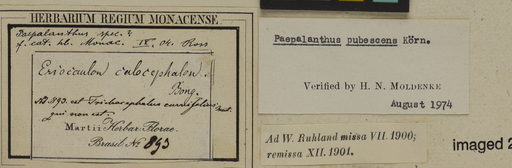 HERBARIUM REGIUM MONACENSE.
Paepalanthus spec.
f. cat. hb. Monac. IX. 04. Ross
Eriocaulon calocephalon.
Bong.
No 893. est Trichocephalus
qui non est.
Martii Herbar. Florae
Brasil. No 893
Paepalanthus pubescens Körn.
Verified by H. N. MOLDENKE
August 1974
Ad W. Ruhland missa VII. 1900;
remissa XII. 1901.
imaged 2